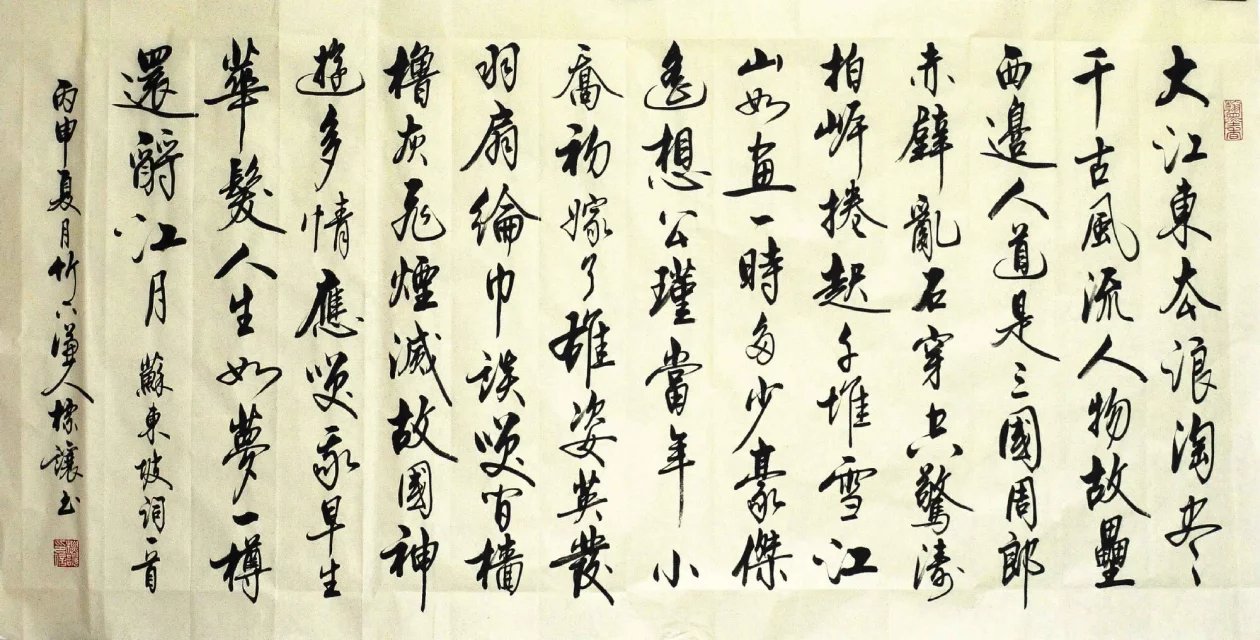 大江東去浪淘尽
千古風流人物故壘
西邊人道是三國周郎
赤壁亂石穿空驚濤
拍岸捲起千堆雪江
山如画一時多少豪傑
遙想公瑾當年小
喬初嫁了雄姿英發
羽扇綸巾談笑间檣
櫓灰飛煙滅故國神
遊多情應笑我早生
華髮人生如夢一樽
還酹江月 蘇東坡詞一首
丙申夏月竹人书